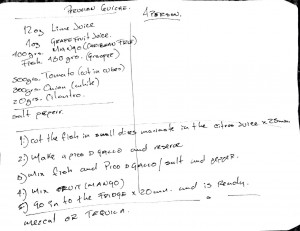 Peruvian Ceviche.
1 Person.
12 oz Lime Juice
1 oz Grapefruit Juice.
100 grs. Mango (
Fish 180 grs. (Grouper)
300 grs. Tomato (cut in cubes)
300 grs. Onion (white)
20 grs. Cilantro.
Salt pepper.
1.) Cut the fish in small dices marinate in the citrus juice x 25 min
2.) Make a Pico D Gallo and reserve
3.) Mix fish and Pico D Gallo / salt and pepper.
4.) Mix fruit (Mango)
5.) go in to the fridge x 20 min. and is ready.
Mezcal or Tequila.